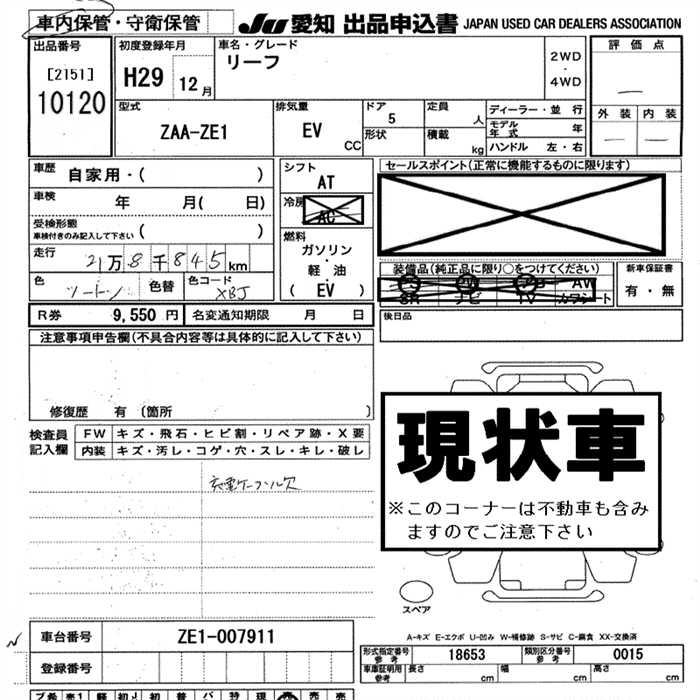 車内保管・守衛保管
JU 愛知 出品申込書 JAPAN USED CAR DEALERS ASSOCIATION
出品番号
[2151]
10120
初度登録年月
H29 12 月
車名・グレード
リーフ
2WD
・
4WD
評価点
外装 内装
型式
ZAA-ZE1
排気量
EV
CC
ドア
5
形状
定員
人
積載
kg
ディーラー・並行
モデル年式 年
ハンドル 左・右
車歴 自家用・( )
車検 年 月( 日)
受検形態
車検付きのみ記入して下さい ( )
走行
21万8千845km
色 ツートン 色替 色コード XBJ
シフト
AT
冷房
AC
燃料
ガソリン
・
軽・油
( EV )
セールスポイント(正常に機能するものに限ります)
装備品(純正品に限り○をつけてください)
SR ナビ TV カワシート
AW
新車保証書
有・無
R券 9,550 円 名変通知期限 月 日
後日品
注意事項申告欄(不具合内容等は具体的に記入して下さい)
修復歴 有 〔箇所 〕
検査員記入欄
FW キズ・飛石・ヒビ割・リペア跡・X要
内装 キズ・汚レ・コゲ・穴・スレ・キレ・破レ
充電ケーブル欠
現状車
※このコーナーは不動車も含み
ますのでご注意下さい
スペア
A-キズ E-エクボ U-凹み W-補修跡 S-サビ C-腐食 XX-交換済
車台番号 ZE1-007911
登録番号
型式指定番号
参考
18653
類別区分番号
参考
0015
車庫証明用
参考
長さ cm 幅 cm 高さ cm